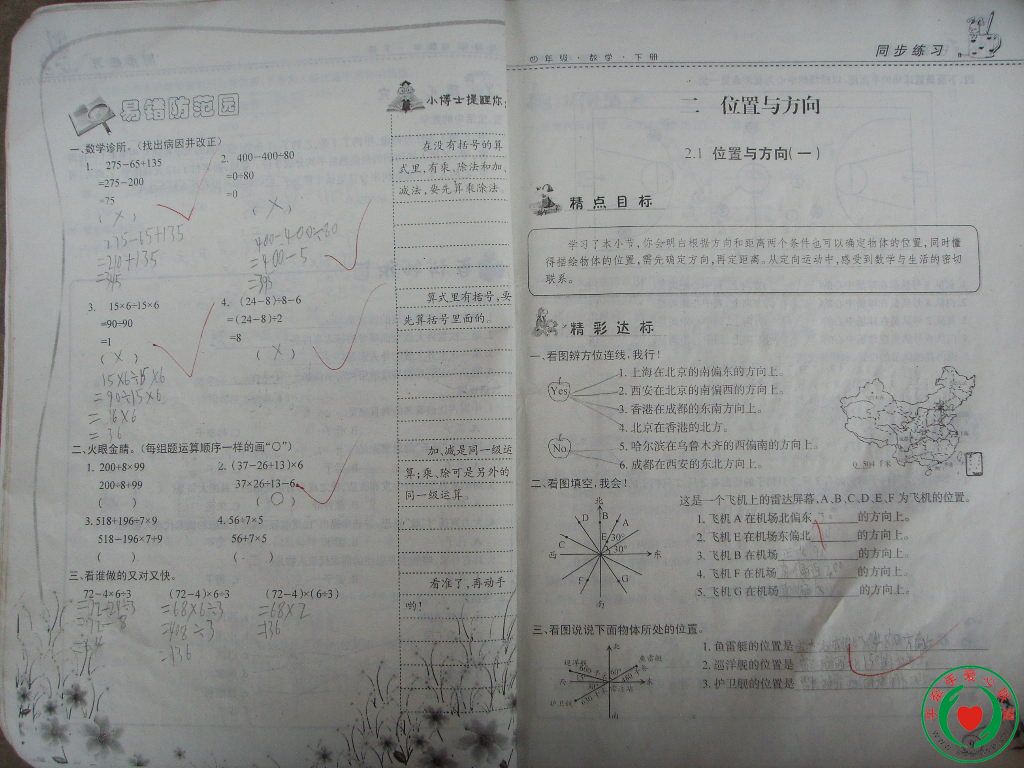 易错防范园
一、数学诊所。(找出病因并改正)
1. 275-65+135
=275-200
=75
( × )
275-65+135
=210+135
=345
2. 400-400÷80
=0÷80
=0
( × )
400-400÷80
=400-5
=395
3. 15×6÷15×6
=90÷90
=1
( × )
15×6÷15×6
=90÷15×6
=6×6
=36
4. (24-8)÷8-6
=(24-8)÷2
=8
( × )
二、火眼金睛。(每组题运算顺序一样的画“○”)
1. 200+8×99
200÷8+99
( )
2. (37-26+13)×6
37×26÷13-6
( ○ )
3. 518+196÷7×9
518-196×7÷9
( )
4. 56÷7×5
56+7×5
( )
三、看谁做的又对又快。
72-4×6÷3
=72-24÷3
=72-8
(72-4)×6÷3
=68×6÷3
=408÷3
=136
(72-4)×(6÷3)
=68×2
=136
小博士提醒你:
在没有括号的算
式里,有乘、除法和加、
减法,要先算乘除法。
算式里有括号,要
先算括号里面的。
加、减是同一级运
算;乘、除可是另外的
同一级运算。
看准了,再动手
哟!
四年级·数学·下册
同步练习
二 位置与方向
2.1 位置与方向(一)
精点目标
学习了本小节,你会明白根据方向和距离两个条件也可以确定物体的位置,同时懂
得描绘物体的位置,需先确定方向,再定距离。从定向运动中,感受到数学与生活的密切
联系。
精彩达标
一、看图辨方位连线,我行!
Yes
No
1. 上海在北京的南偏东的方向上。
2. 西安在北京的南偏西的方向上。
3. 香港在成都的东南方向上。
4. 北京在香港的北方。
5. 哈尔滨在乌鲁木齐的西偏南的方向上。
6. 成都在西安的东北方向上。
二、看图填空,我会!
北
D
B
A
C
E
30°
30°
西
东
F
G
南
这是一个飞机上的雷达屏幕,A、B、C、D、E、F 为飞机的位置。
1. 飞机 A 在机场北偏东 的方向上。
2. 飞机 E 在机场东偏北 的方向上。
3. 飞机 B 在机场 的方向上。
4. 飞机 F 在机场 的方向上。
5. 飞机 G 在机场 的方向上。
三、看图说说下面物体所处的位置。
北
巡洋舰
鱼雷艇
东
护卫舰
南
1. 鱼雷艇的位置是
2. 巡洋舰的位置是
3. 护卫舰的位置是